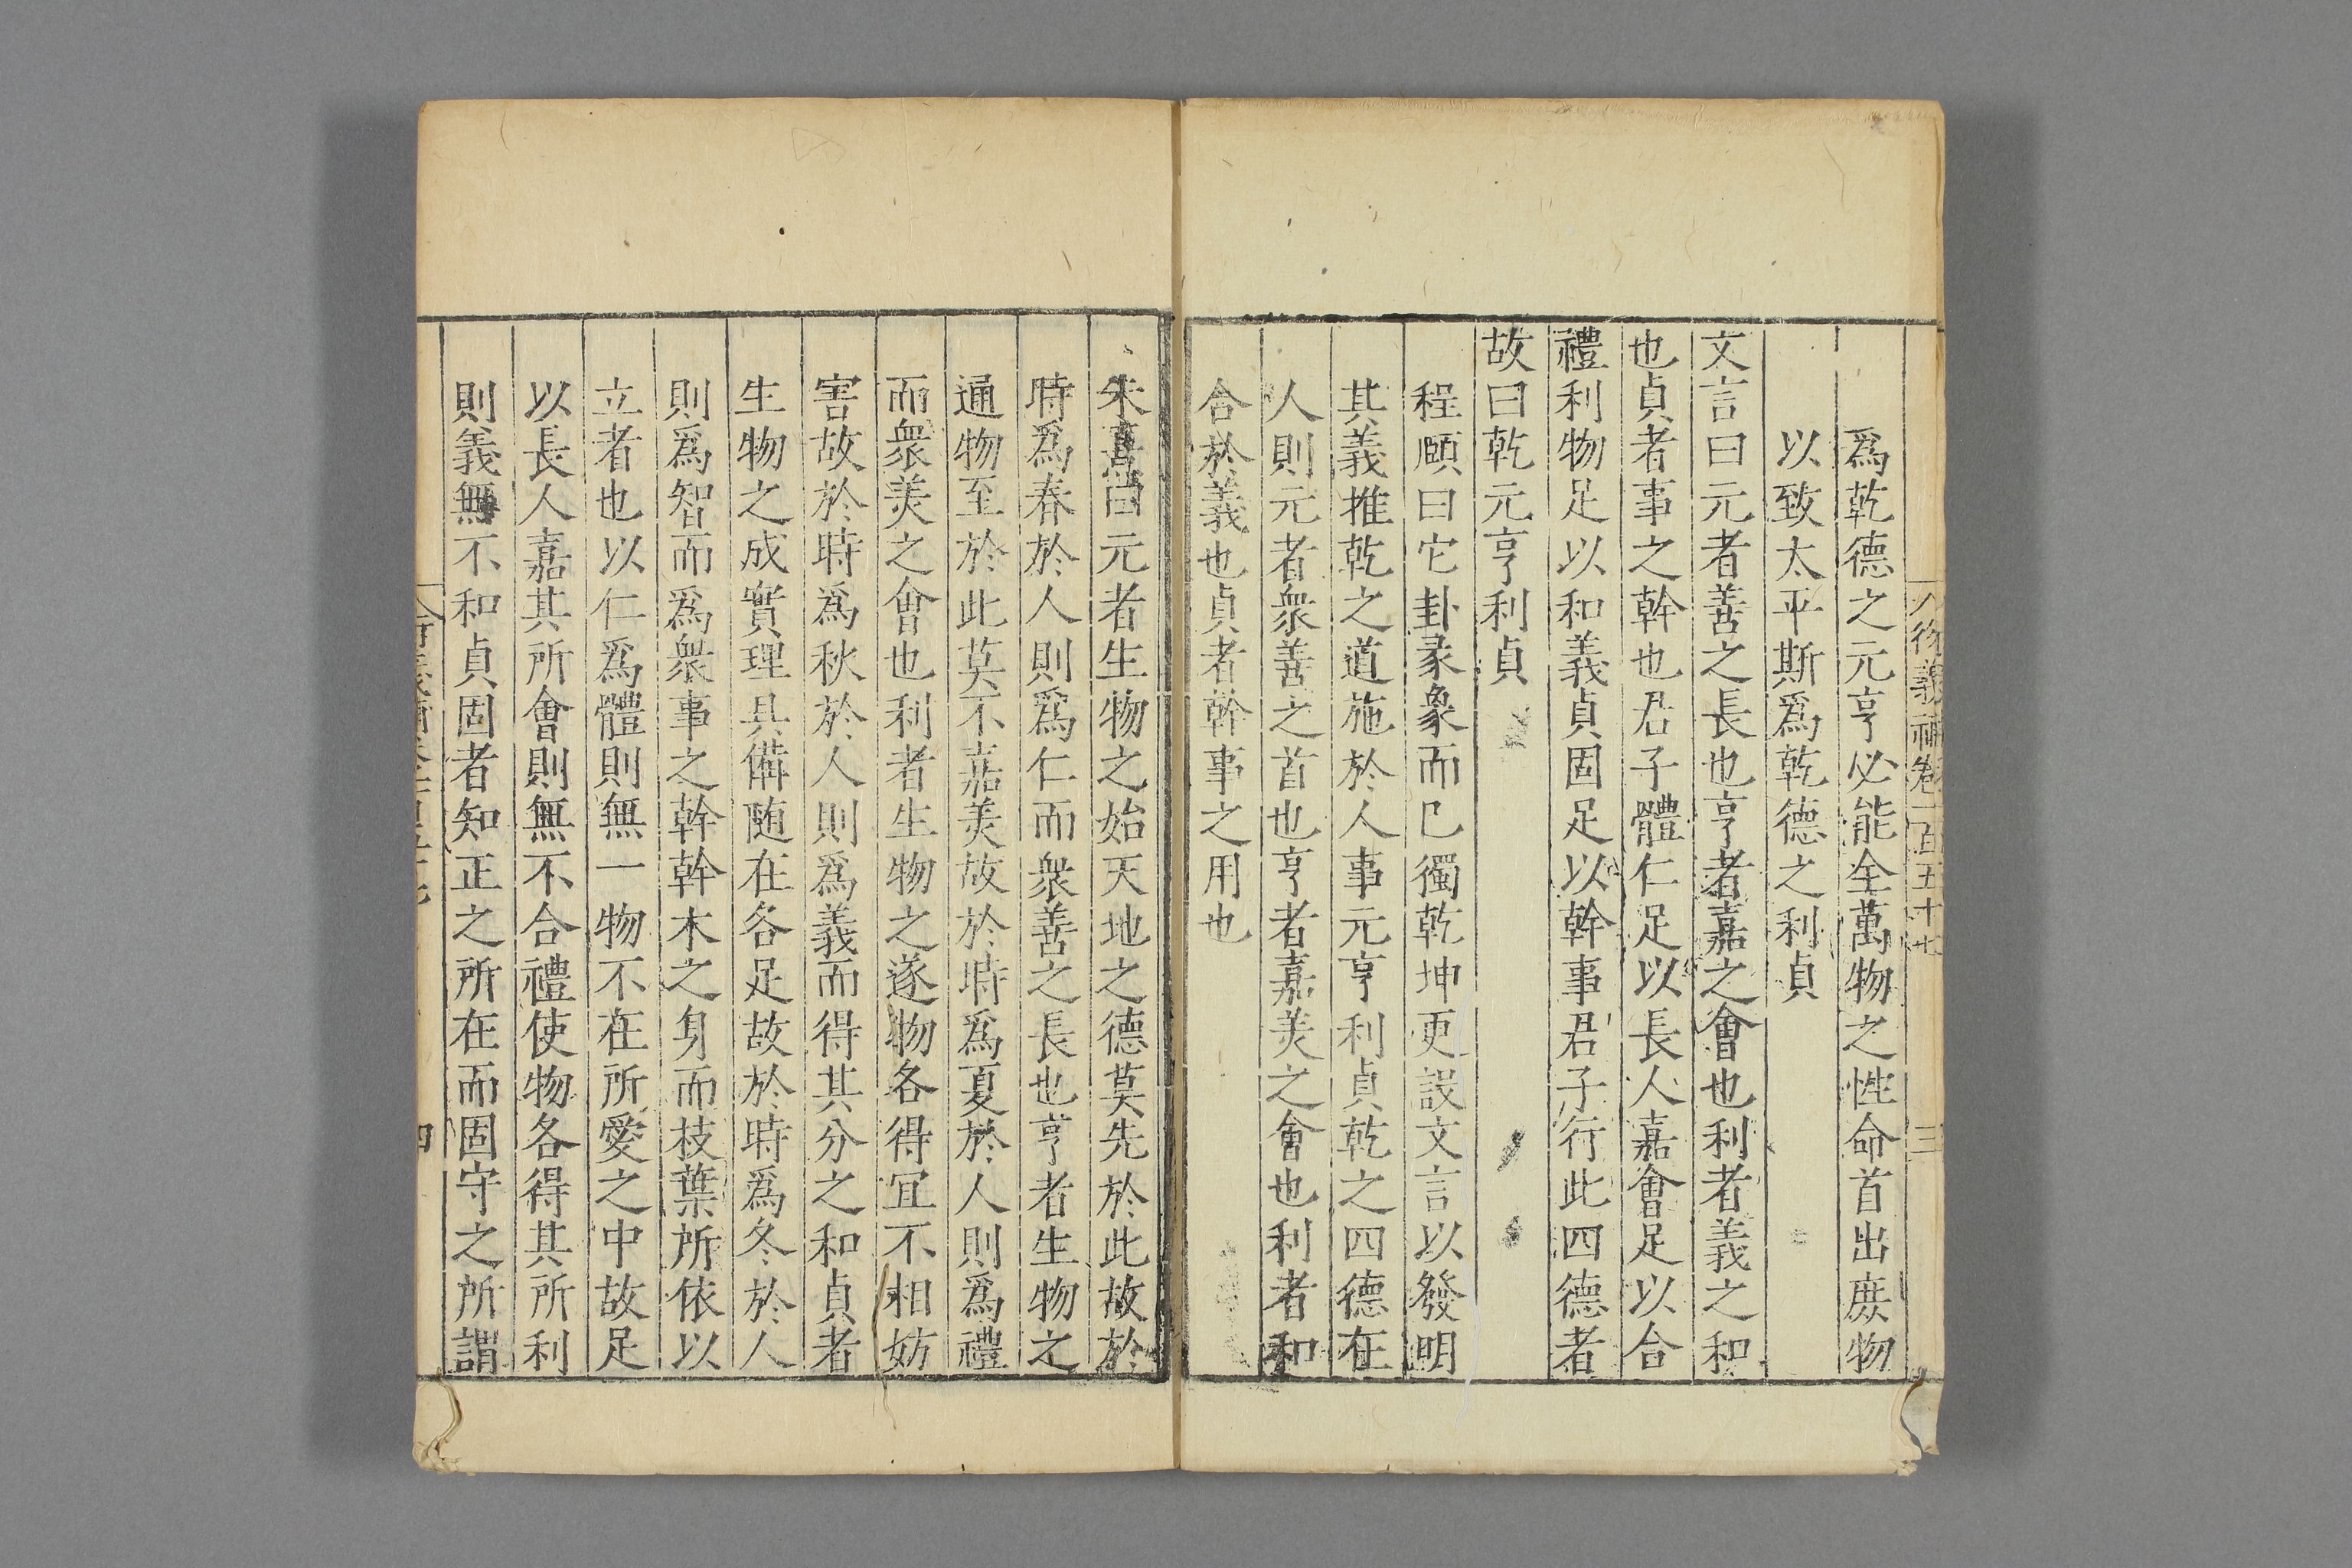 爲乾德之元亨必能全萬物之性命首出庶物
以致太平斯爲乾德之利貞
文言曰元者善之長也亨者嘉之會也利者義之和
也貞者事之幹也君子體仁足以長人嘉會足以合
禮利物足以和義貞固足以幹事君子行此四德者
故曰乾元亨利貞
程頤曰它卦彖象而已獨乾坤更設文言以發明
其義推乾之道施於人事元亨利貞乾之四德在
人則元者衆善之首也亨者嘉美之會也利者和
合於義也貞者幹事之用也
朱熹曰元者生物之始天地之德莫先於此故於
時爲春於人則爲仁而衆善之長也亨者生物之
通物至於此莫不嘉美故於時爲夏於人則爲禮
而衆美之會也利者生物之遂物各得宜不相妨
害故於時爲秋於人則爲義而得其分之和貞者
生物之成實理具備随在各足故於時爲冬於人
則爲智而爲衆事之幹幹木之身而枝葉所依以
立者也以仁爲體則無一物不在所愛之中故足
以長人嘉其所會則無不合禮使物各得其所利
則義無不和貞固者知正之所在而固守之所謂
衍義補卷一百五十七
三
四